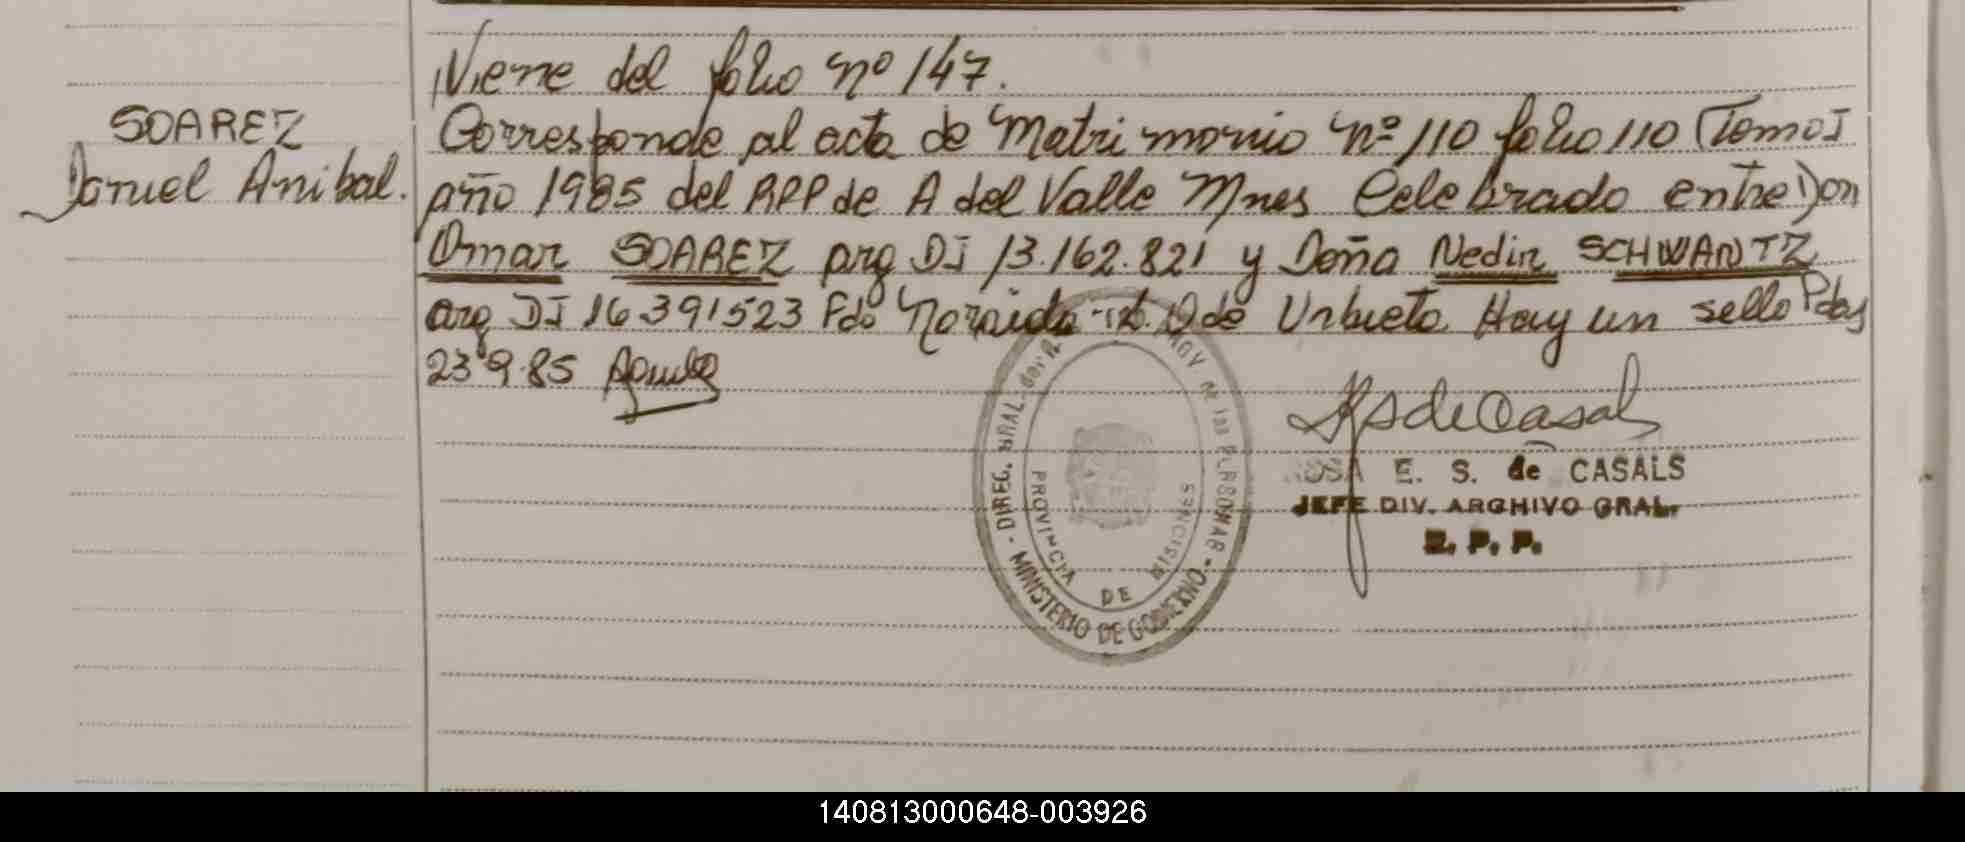 Viene del folio nº 147.
SOAREZ
Daniel Anibal.
Corresponde al acta de Matrimonio nº 110 folio 110 Tomo I
año 1985 del RPP de A del Valle Mnes Celebrado entre Don
Omar SOAREZ arg DI 13.162.821 y Doña Nedir SCHWANTZ
arg DI 16391523 Fdo Noraida de Urbieta Hay un sello Pdas
23 9.85
ROSA E. S. de CASALS
JEFE DIV. ARCHIVO GRAL.
R. P. P.
DIREC. GRAL. de las PERSONAS
MINISTERIO DE GOBIERNO
PROVINCIA DE MISIONES
140813000648-003926